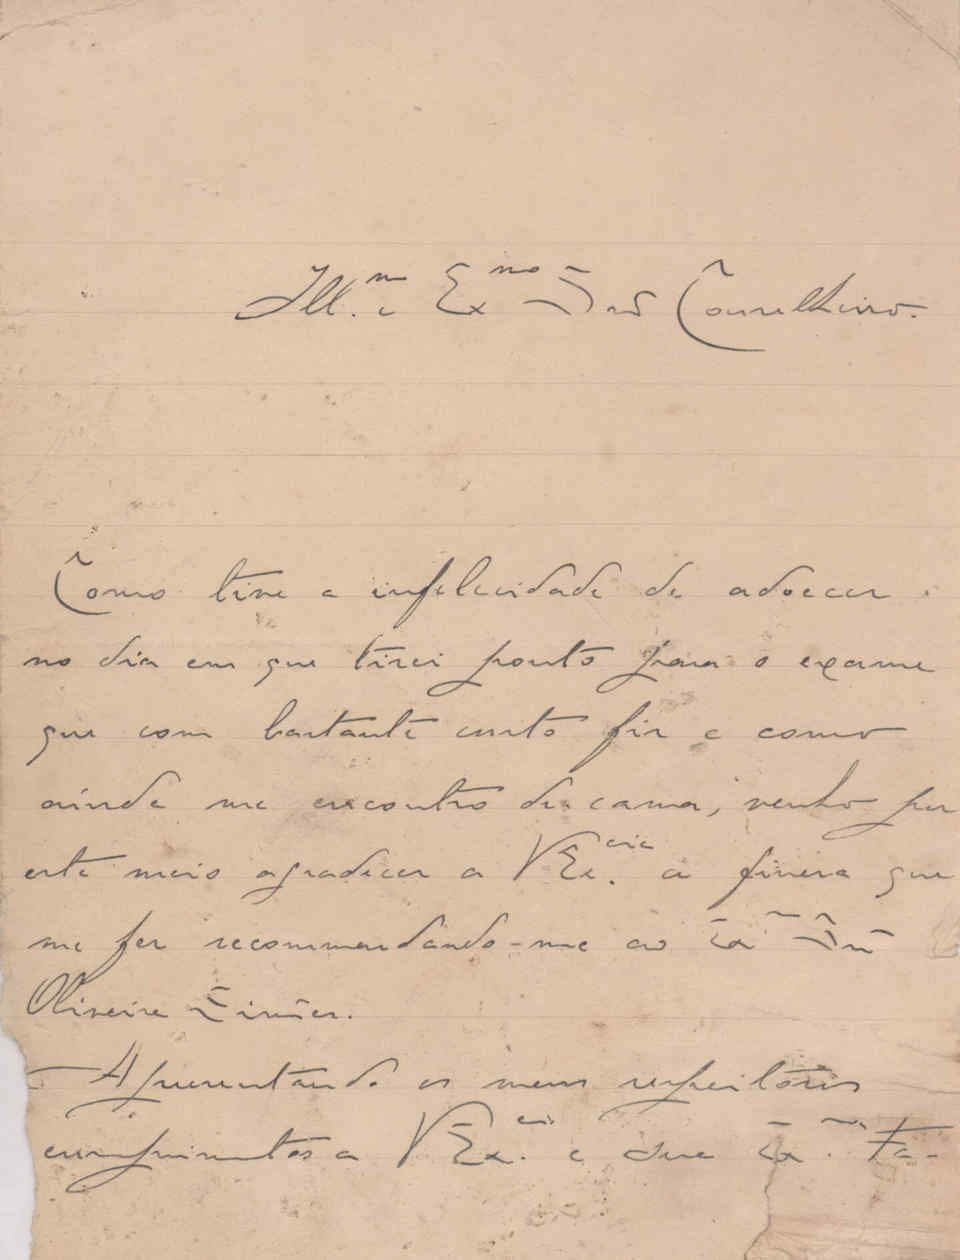 Ill.mo e Exmo Snr Conselheiro.
Como tive a infelecidade de adoecer
no dia em que tirei ponto para o exame
que com bastante custo fiz e como
ainda me encontro de cama, venho por
este meio agradecer a VEx.cia a fineza que
me fez recommendando-me ao Exmo Snr
Oliveira Simões.
— Apresentando os meus respeitosos
cumprimentos a VEx.cia e sua Exma. Fa-